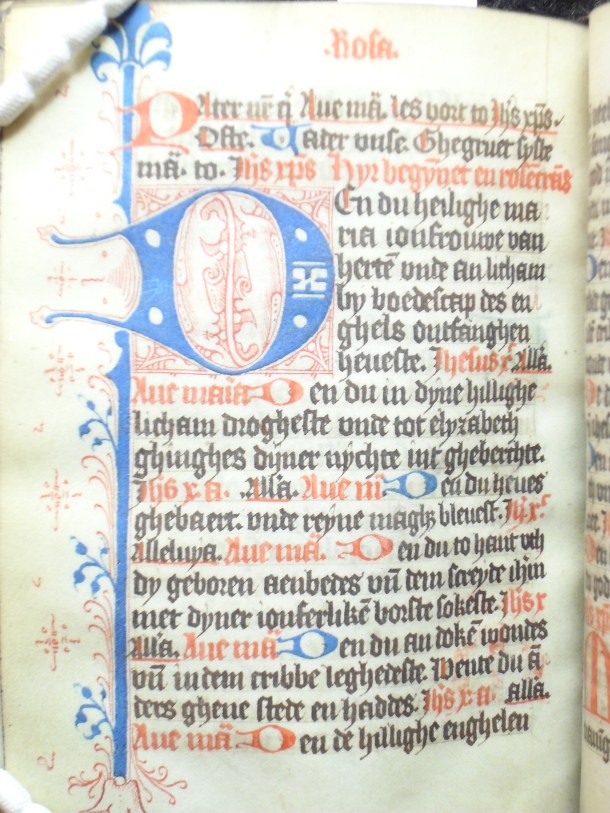 Rosa.
Pater nr̄ q̄ Aue mā. les vort to Ihs xp̄s.
Ofte. Uader vnse. Ghegruet syste
mā. to. Ihs xps Hyr begȳnet en rosecrās
DEn du heilighe ma
ria ionfrouwe van
hertē vnde an licham
by boedescap des en
ghels ontfanghen
heueste. Ihesus xc Alla.
Aue maīa Den du in dyne hillighe
licham drogheste vnde tot elyzabeth
ghinghes dyner nychte int gheberchte.
Ihs x a. Alla. Aue m̄. Den du heues
ghebaert. vnde reyne maghz bleuest. Ihs xc
Alleluya. Aue mā. Den du to hant
dy geboren aenbedes vn̄ dem screyde ihm
met dyner ionferlikē borste sokeste. Ihs x
Alla. Aue mā Den du an dokē wondes
vn̄ in dem cribbe leghedeste. Wente du ā
ders ghene stede en haddes. Ihs x a. alla.
Aue mā. Den de hillighe enghelen